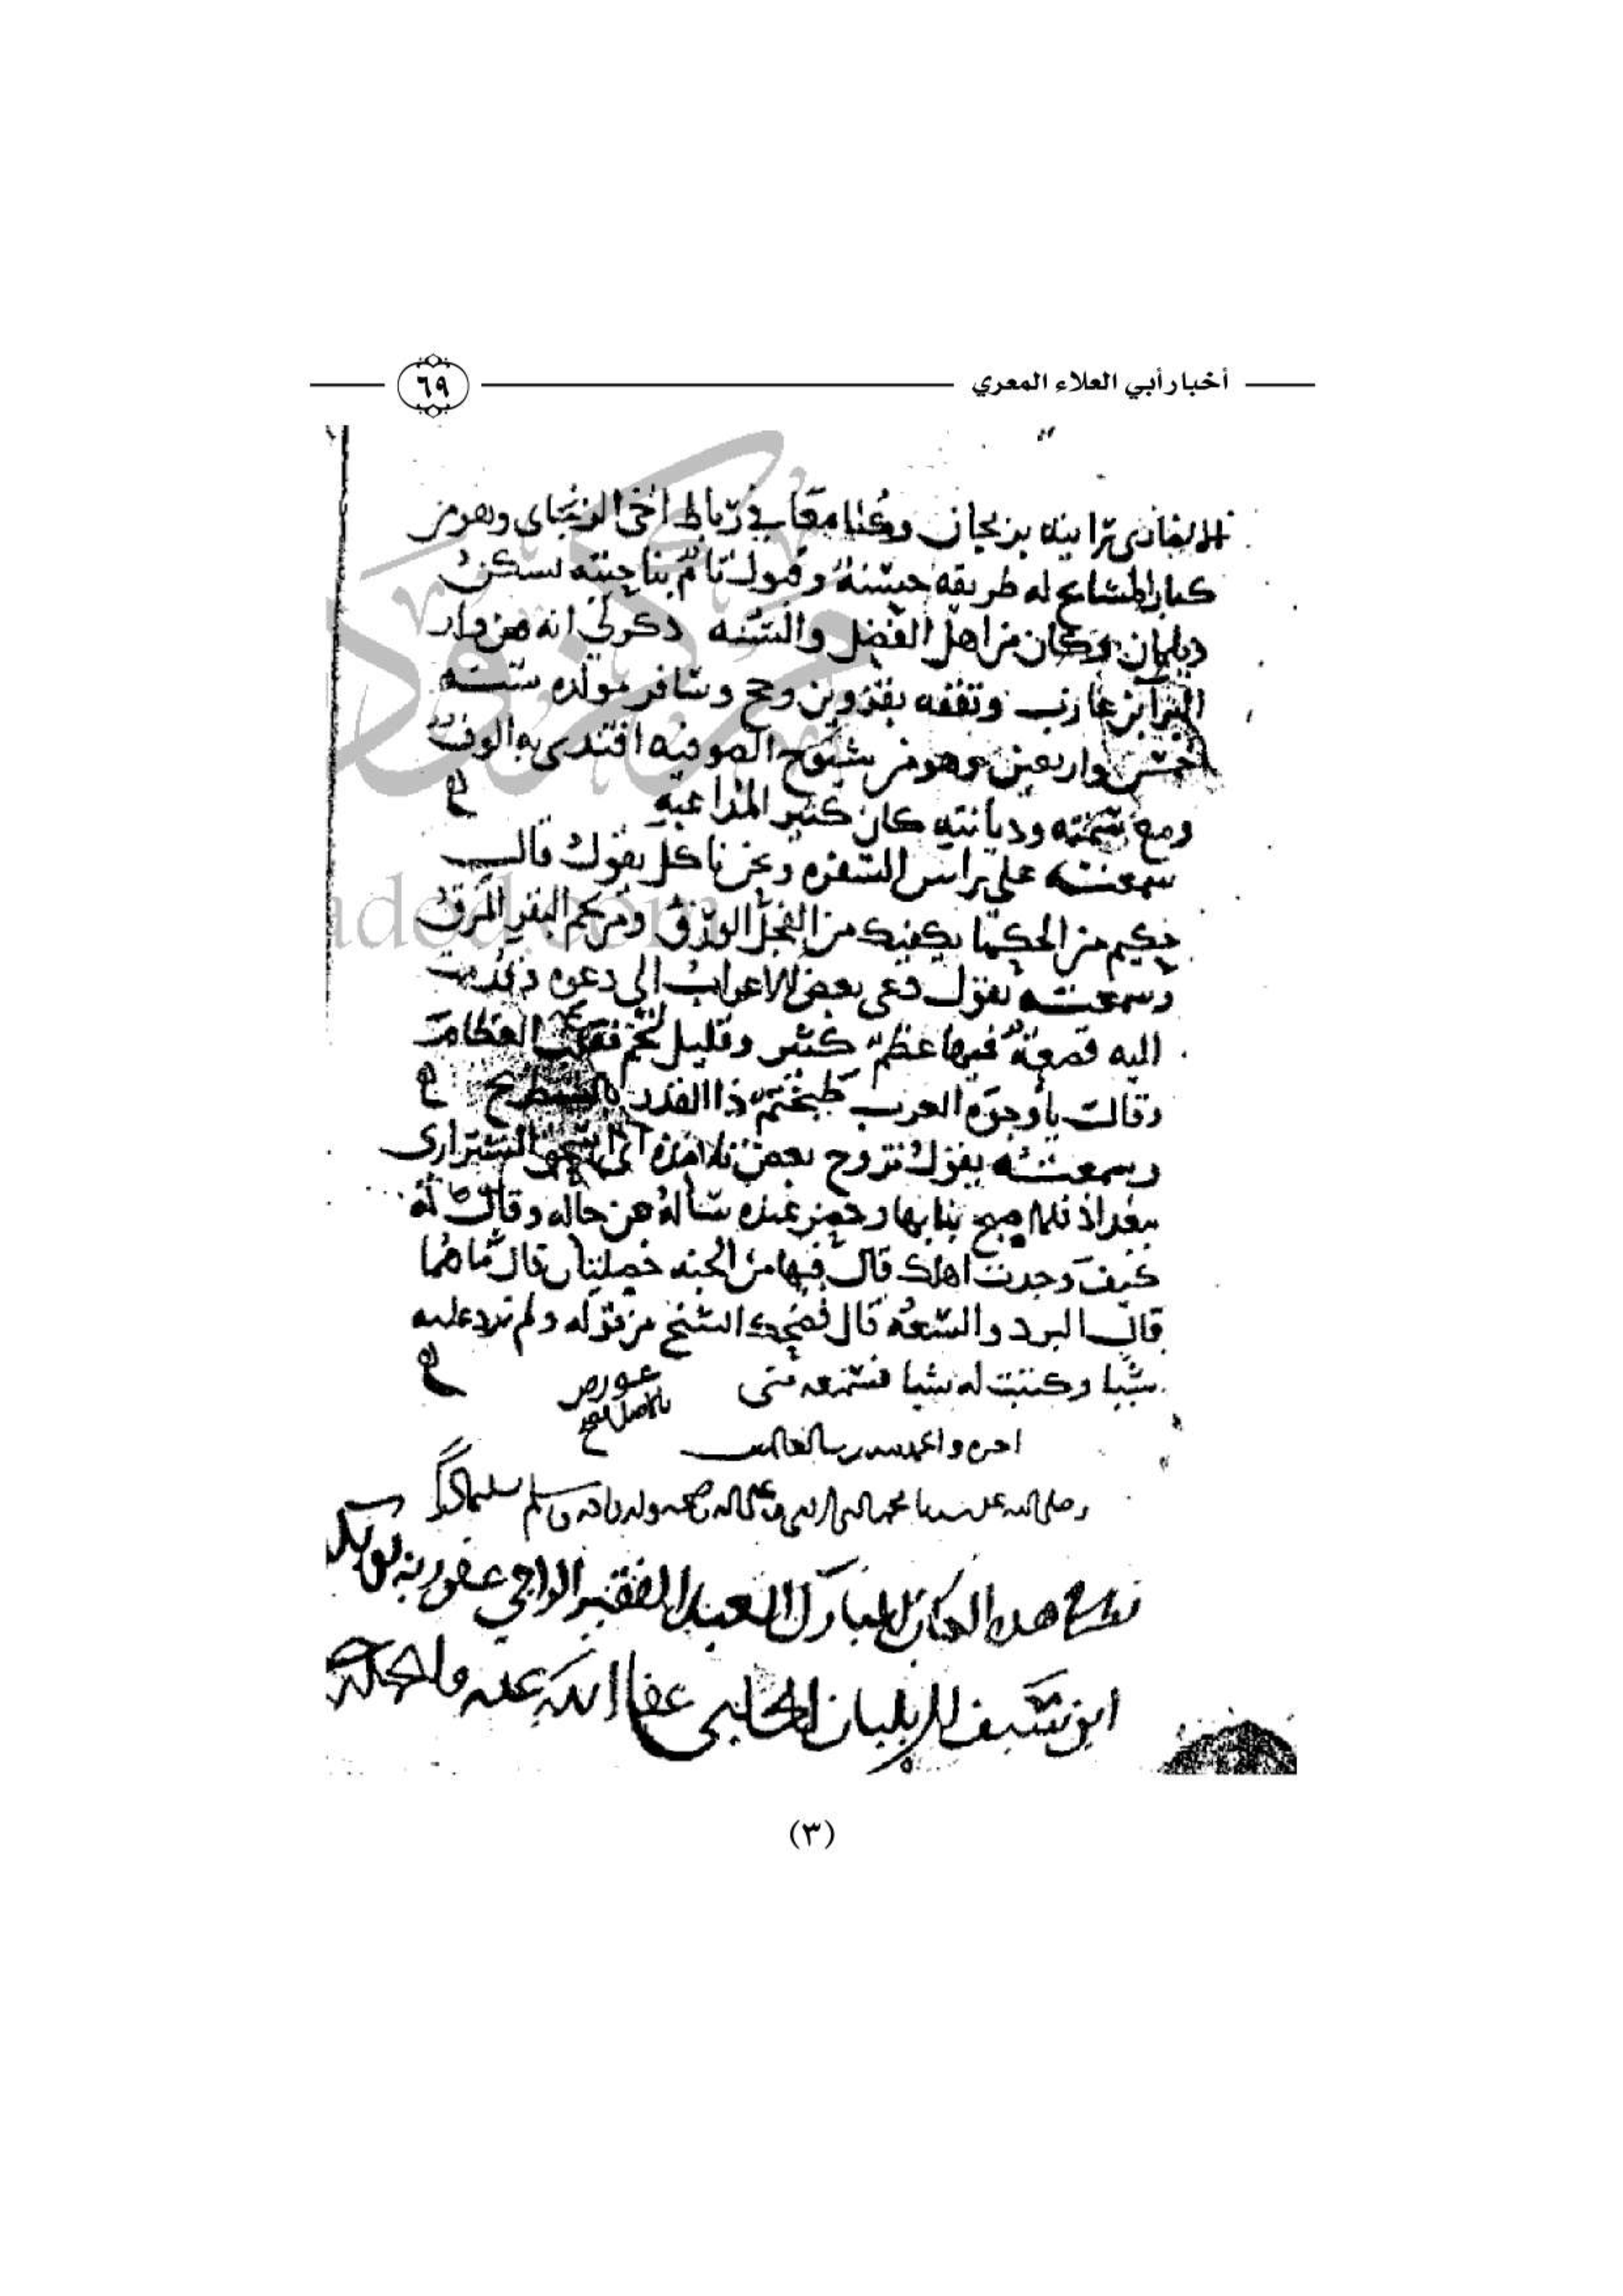 أخبار أبي العلاء المعري
٦٩
رايته بزنجان وكنا معا في رباط اخي الزنجاني وهو من
كبار المشايخ له طريقه حسنة وقبول تام بناحيته يسكن
ديلمان وكان من اهل الفضل والسنه ذكر لي انه من ولد
البرا بن عازب وتفقه بقزوين وحج وسافر مولده سنه
خمس واربعين وهو من شيوخ الصوفيه اقتدى به الوف
ومع سمته وديانته كان كثير المداعبة
سمعته على راس السفره ونحن ناكل يقول قال
حكيم من الحكما يكفيك من الفجل الورق ومن لحم البقر المرق
وسمعته يقول دعي بعض الاعراب الى دعوه وقدمت
اليه قصعة فيها عظم كثير وقليل لحم العظام
وقالت يا وجوه العرب طبختم ذا القدر بالشطرنج
وسمعته يقول تزوج بعض تلامذه ابي اسحق الشيرازى
ببغداذ فلما اصبح وحضر عنده ساله عن حاله وقال له
كيف وجدت اهلك قال فيها من الجنه خصلتان قال ما هما
قال البرد والسعه قال فضحك الشيخ من قوله ولم يرد عليه
شيا وكتبت له شيا فسمعه منى
عورض
بالاصل فصح
اخره والحمد لله رب العالمين
وصلى الله على سيدنا محمد النبي وعلى اله وصحبه وسلم تسليما
هذا الكتاب المبارك العبد الفقير الراجي عفو ربه
ابن الحلبي عفا الله عنه
(٣)